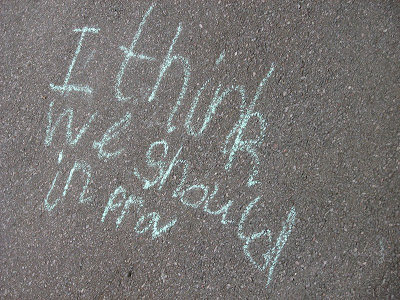 I think
we should
in priv